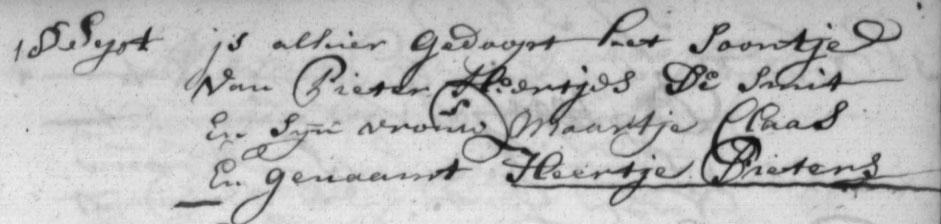 18 Sept js alhier Gedoopt het Soontje
Van Pieter Heertjes De Smit
En Syn vrouw Maartje Claas
En genaamt Heertje Pieters